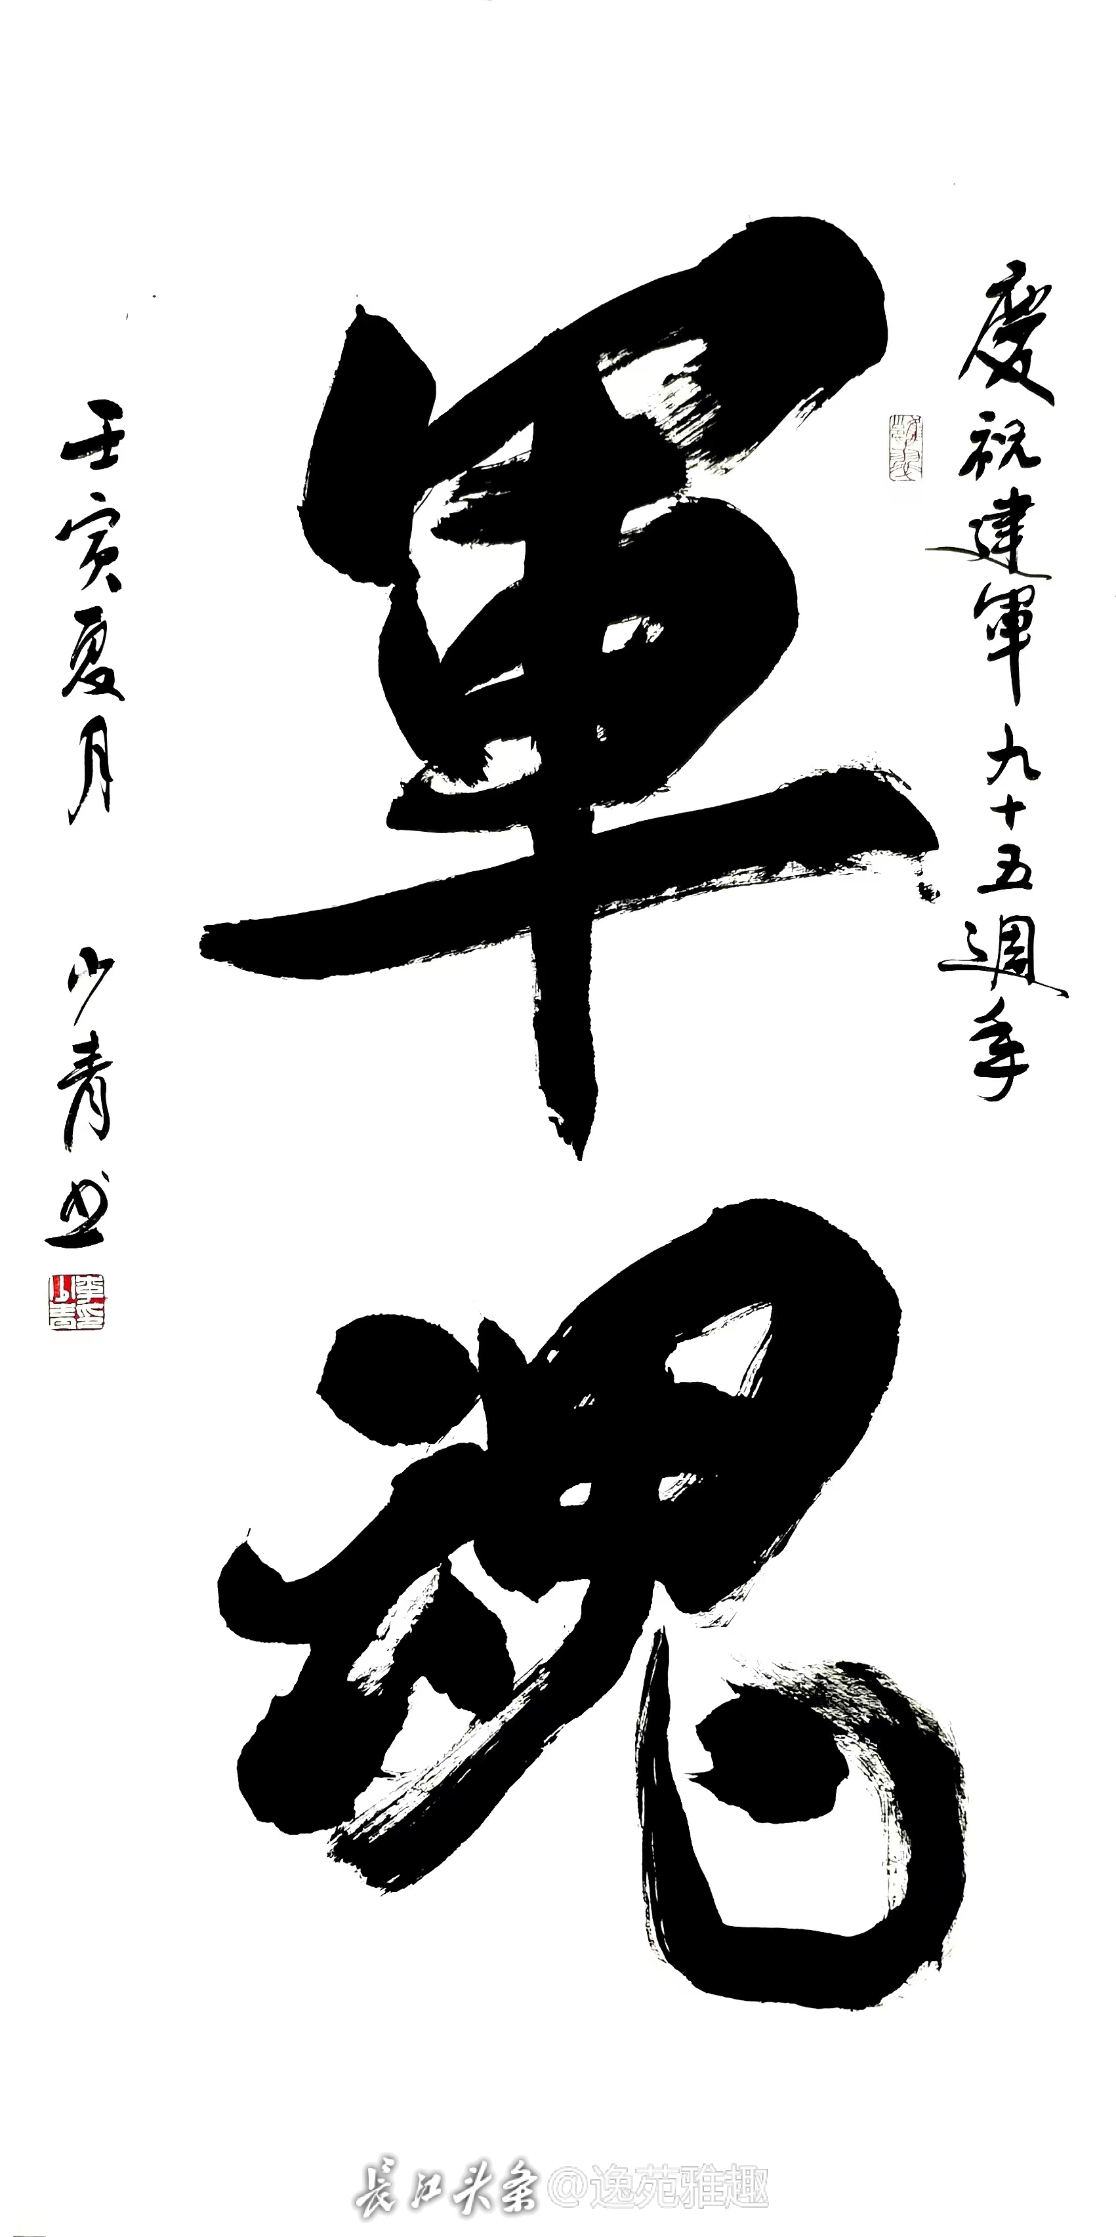 慶祝建軍九十五週年
軍魂
壬寅夏月 少青书
長江头条@逸苑雅趣